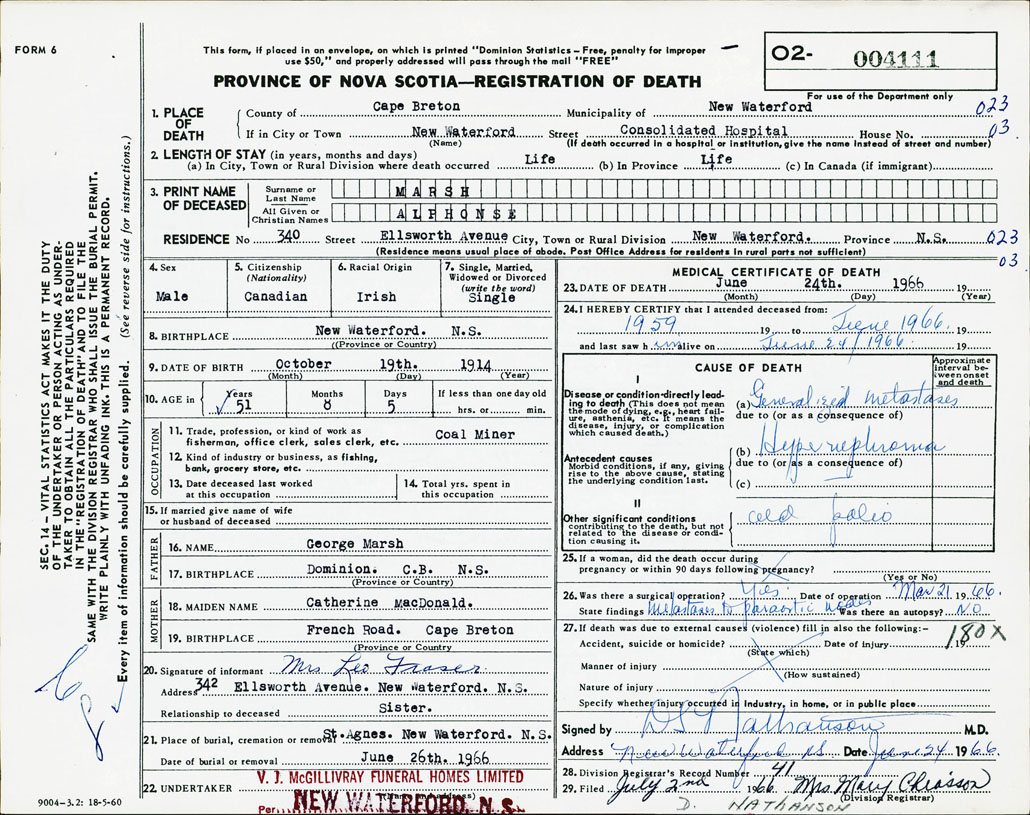 FORM 6
This form, if placed in an envelope, on which is printed "Dominion Statistics – Free, penalty for improper
use $50," and properly addressed will pass through the mail "FREE"
PROVINCE OF NOVA SCOTIA—REGISTRATION OF DEATH
O2- 004111
For use of the Department only
1. PLACE OF DEATH
County of Cape Breton Municipality of New Waterford 023
If in City or Town New Waterford Street Consolidated Hospital House No. 03
(Name) (If death occurred in a hospital or institution, give the name instead of street and number)
2. LENGTH OF STAY (in years, months and days)
(a) In City, Town or Rural Division where death occurred Life (b) In Province Life (c) In Canada (if immigrant)
3. PRINT NAME OF DECEASED
Surname or Last Name MARSH
All Given or Christian Names ALPHONSE
RESIDENCE No 340 Street Ellsworth Avenue City, Town or Rural Division New Waterford. Province N.S. 023
(Residence means usual place of abode. Post Office Address for residents in rural parts not sufficient) 03
4. Sex Male
5. Citizenship (Nationality) Canadian
6. Racial Origin Irish
7. Single, Married, Widowed or Divorced (write the word) Single
8. BIRTHPLACE New Waterford. N.S.
((Province or Country)
9. DATE OF BIRTH October 19th. 1914
(Month) (Day) (Year)
10. AGE in Years 51 Months 8 Days 5 If less than one day old hrs. or min.
OCCUPATION
11. Trade, profession, or kind of work as
fisherman, office clerk, sales clerk, etc. Coal Miner
12. Kind of industry or business, as fishing,
bank, grocery store, etc.
13. Date deceased last worked
at this occupation
14. Total yrs. spent in
this occupation
15. If married give name of wife
or husband of deceased
FATHER
16. NAME George Marsh
17. BIRTHPLACE Dominion. C.B. N.S.
(Province or Country)
MOTHER
18. MAIDEN NAME Catherine MacDonald.
19. BIRTHPLACE French Road. Cape Breton
(Province or Country
20. Signature of informant Mrs Leo Fraser
Address 342 Ellsworth Avenue. New Waterford. N.S.
Relationship to deceased Sister.
21. Place of burial, cremation or removal St. Agnes. New Waterford. N.S.
Date of burial or removal June 26th. 1966
22. UNDERTAKER V. J. McGILLIVRAY FUNERAL HOMES LIMITED
Per NEW WATERFORD, N. S.
MEDICAL CERTIFICATE OF DEATH
23. DATE OF DEATH June 24th. 1966 19
(Month) (Day) (Year)
24. I HEREBY CERTIFY that I attended deceased from:
1959 19 to June 1966. 19
and last saw him alive on June 24/1966. 19
CAUSE OF DEATH
Approximate interval between onset and death
I
Disease or condition directly leading to death (This does not mean
the mode of dying, e.g., heart failure, asthenia, etc. It means the
disease, injury, or complication
which caused death.)
(a) Generalized metastases
due to (or as a consequence of)
Antecedent causes
Morbid conditions, if any, giving
rise to the above cause, stating
the underlying condition last.
(b) Hypernephroma
due to (or as a consequence of)
(c)
II
Other significant conditions
contributing to the death, but not
related to the disease or condition causing it.
old polio
25. If a woman, did the death occur during
pregnancy or within 90 days following pregnancy?
(Yes or No)
26. Was there a surgical operation? Yes. Date of operation Mar 21 1966.
State findings metastases to paraortic nodes Was there an autopsy? NO
27. If death was due to external causes (violence) fill in also the following:–
180X
Accident, suicide or homicide? Date of injury 19
(State which)
Manner of injury
(How sustained)
Nature of injury
Specify whether injury occurred in Industry, in home, or in public place
Signed by D S Nathanson M.D.
Address New Waterford NS Date June 24 1966
28. Division Registrar's Record Number 41
29. Filed July 2nd 1966 Mrs. Mary Chiasson
(Division Registrar)
D. NATHANSON
SEC. 14 – VITAL STATISTICS ACT MAKES IT THE DUTY
OF THE UNDERTAKER OR PERSON ACTING AS UNDERTAKER TO OBTAIN ALL THE PARTICULARS REQUIRED
IN THE "REGISTRATION OF DEATH" AND TO FILE THE
SAME WITH THE DIVISION REGISTRAR WHO SHALL ISSUE THE BURIAL PERMIT.
WRITE PLAINLY WITH UNFADING INK. THIS IS A PERMANENT RECORD.
Every item of information should be carefully supplied. (See reverse side for instructions.)
9004–3.2: 18-5-60